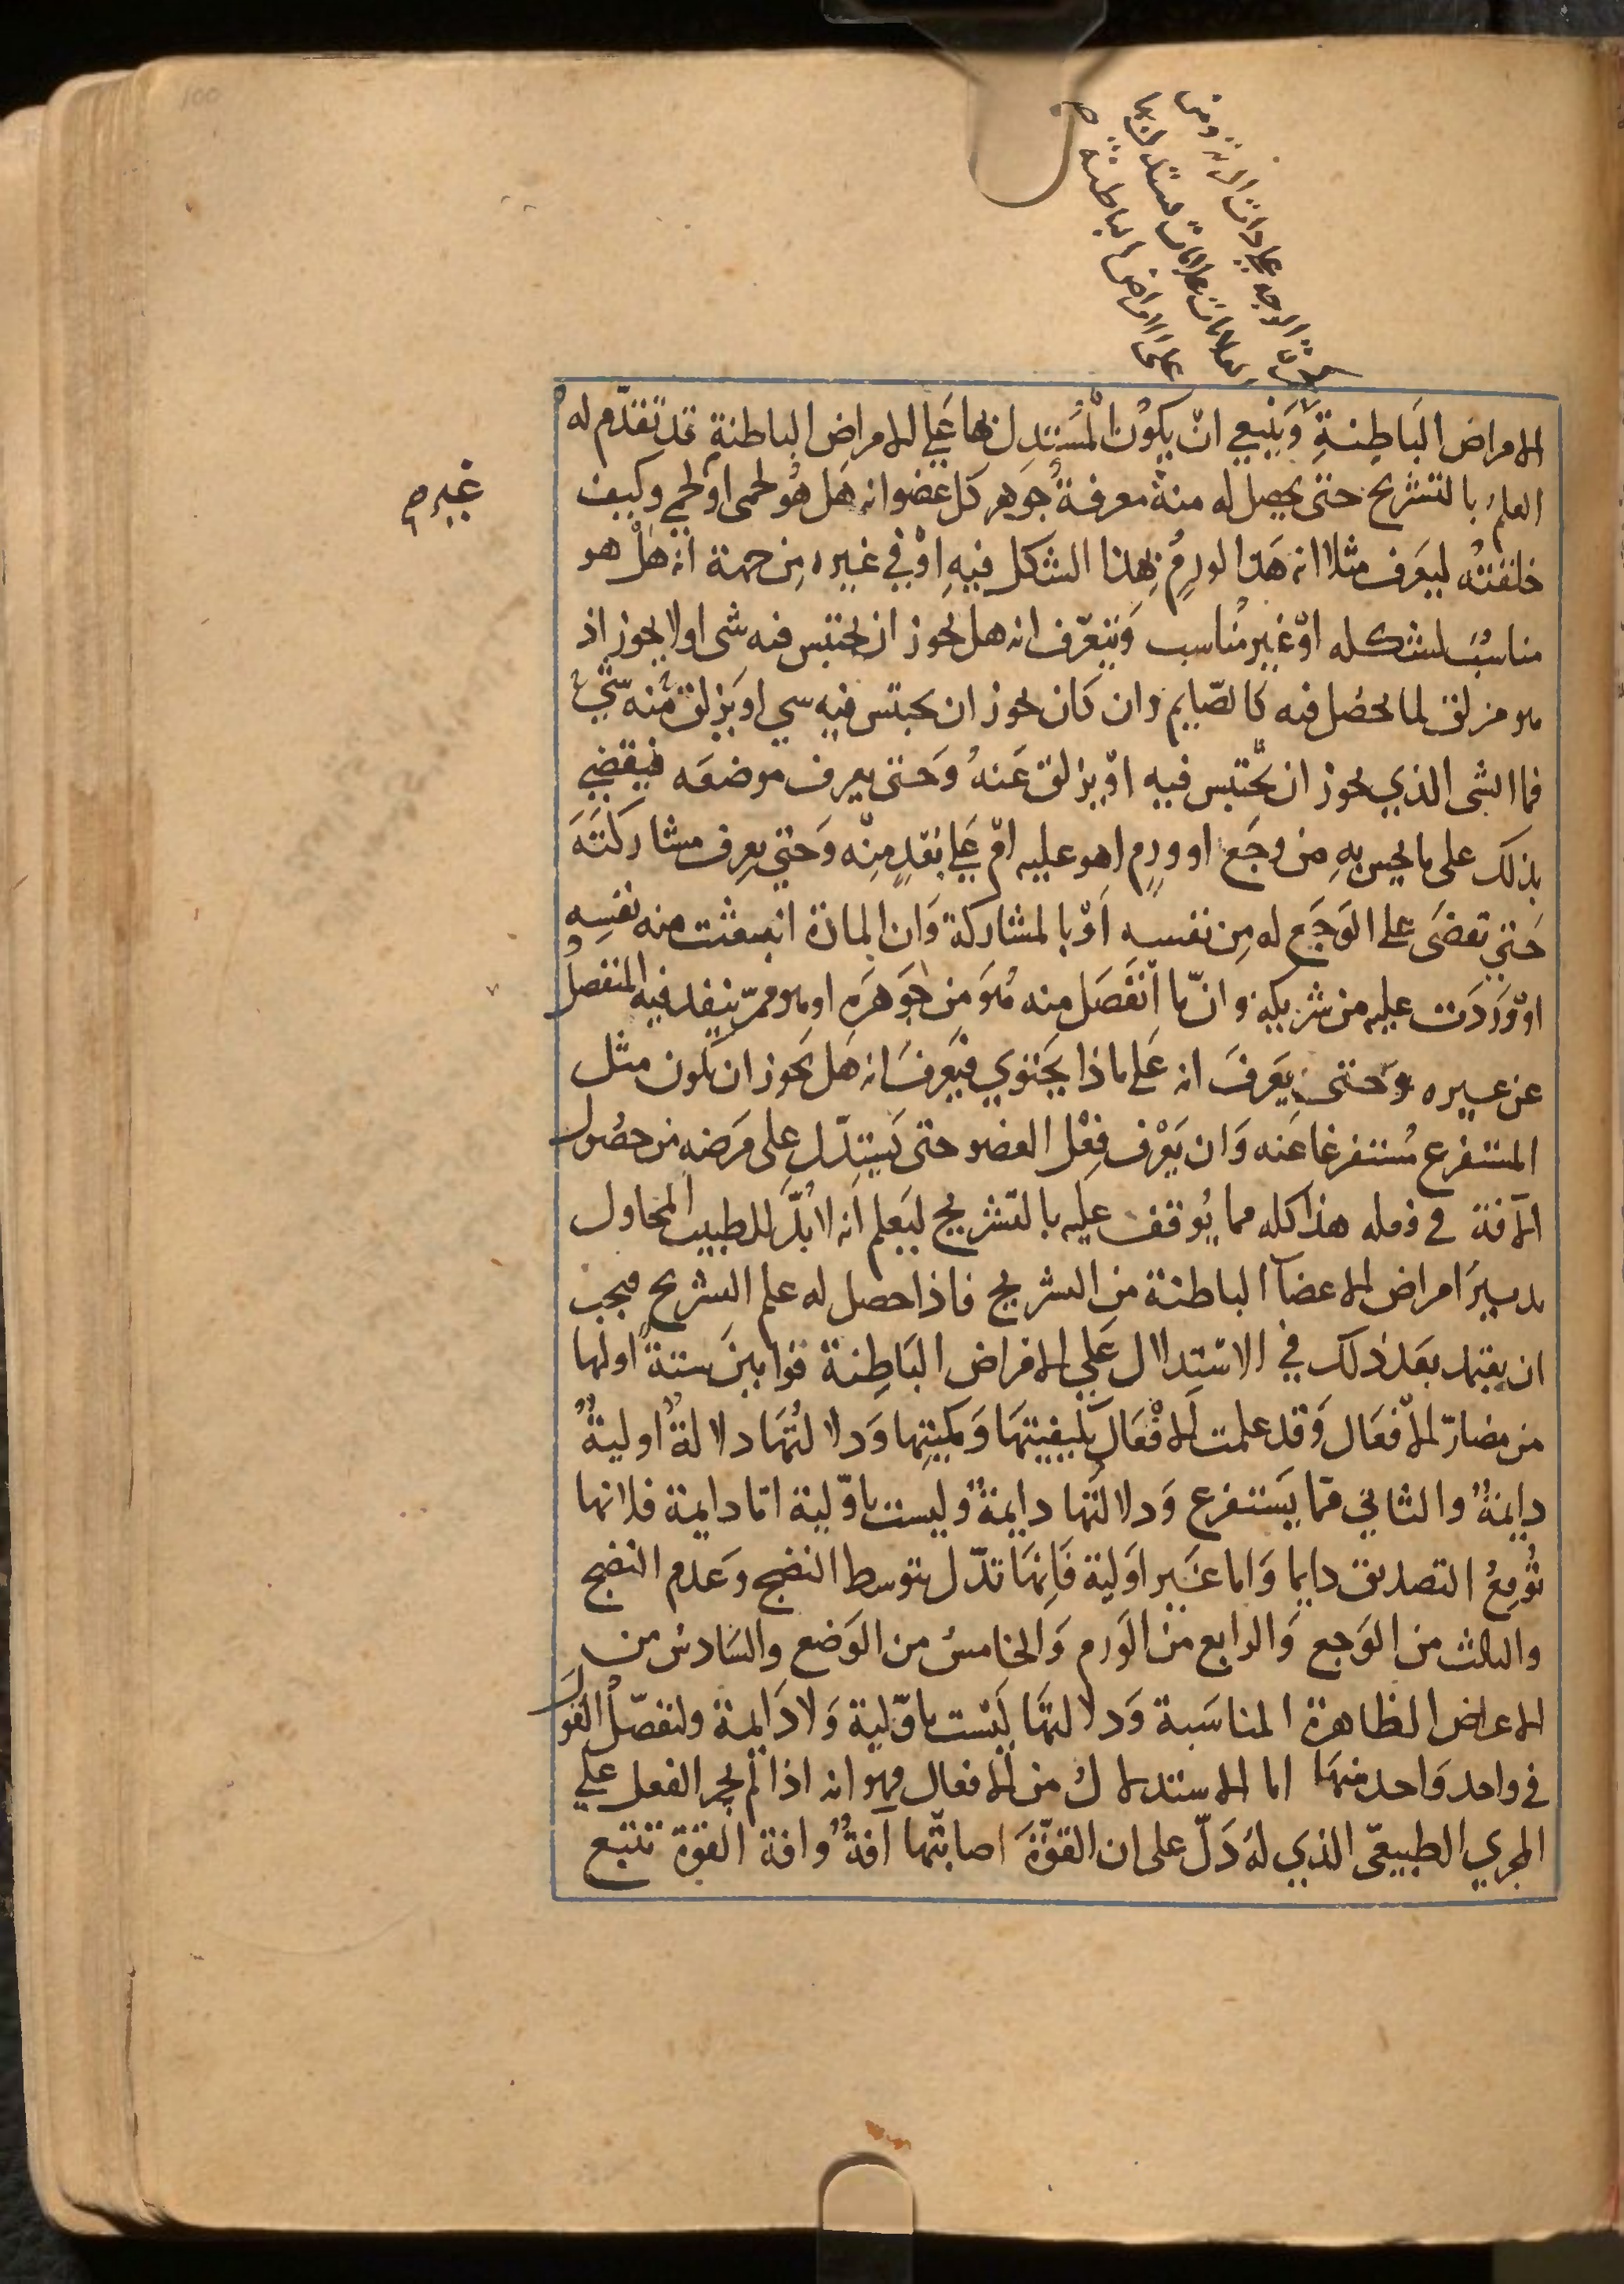 100
الامراض الباطنةِ وَيَنبغي انْ يكوُن المُسْتدِل بها عَلي الامراض الباطنةِ قد تقدّم له
العلمُ بالتشريح حتى يحصل له منهُ معرفةُ جوهر كل عضو انه هَل هُو لحمى او لحمي وكيف
غيره صح
خلقتُه ليعَرف مثلا انه هَذا الورمُ بهذا الشكل فيهِ اوْ في غيره مِن جهة انه هَلْ هو
مناسبُ لشكله اوْ غير مُناسب وَيتعرّف انه هل يجوز ان يحتبس فيه شى او لا يجوز اذ
هو مزلق لما يحصُل فيه كالصّايم وان كان يجوز ان يحبتس فيه سي او يَزلق مُنه شيءُ
فما الشى الذي يجوز ان يحْتبس فيه اوْ يزلق عَنهُ وَحَتى يعرف موضعَه فيقضي
بذلك على ما يحس بهِ مِن وجَع او ورمٍ اهو عليه امْ عَلي بُعْدٍ مِنْه وَحَتي يعرِف مشاركتَهَ
حَتي تقضَى على الوَجَع له مِن نفسهِ اَوْ بالمشاركة وَان المادة انبعثت منه نفسِهِ
اوْ وَرَدَت عليه من شريكهِ و انّ ما انْفَصَل منه هُوَ مِن جَوهَرَهِ او هو ممرّ ينفد فيه المنفصلُ
عن عيره وَحتى يَعَرفَ انه عَلي ماذا يَحتوي فيَعرفَ انه هَل يَجوز ان يكون مثل
المستفرع مُستفرغا عَنه وَان يَعْرف فِعْل العضو حتى يَستِدّل على مَرَضهِ من حصُول
الآفة في فعله هذا كله مما يُوقفُ عليه بالتشريح ليَعلم اَنه لا بُدَّ للطبيب المحاول
بدبيرَ امراض الاعضآ الباطنة من التشريح فاذا حصل له علم التشريح فيجب
ان يعتمد بعَد ذلك في الاسْتِدلال عَلي الامراض البَاطِنة قوانينَ ستةً اولها
من مضارّ الاْفعَال وَقد علمت الاْفْعَال بكيفيتهَا وَكميتِها وَدلالتُهَا دلالةٌ اوليةٌ
دايمةٌ والثاني ممّا يَستفرع وَدلالتُها دايمةٌ وليست باوّلية امّا دايمة فلانها
تُوقِعُ التصديق دايما وَاما غَير اوَلية فَاِنهَا تدّل بتوسط النضج وعَدم النضج
والثالث من الوَجع وَالرابع مِن الوَرم وَالخامسُ من الوَضع والسَادسُ من
الاعراض الظاهرة المناسَبة وَدلالتهَا ليْست باوّلية وَلا دَايمة ولنفصّلْ القول
في واحد وَاحد منهَا اما الاستدلال من الافعال فهو انه اذا لم يجر الفعل علي
المجري الطبيعّى الذي لهُ دَلّ على ان القوّةَ اصابتْها افةٌ وافة القوّة تتبع